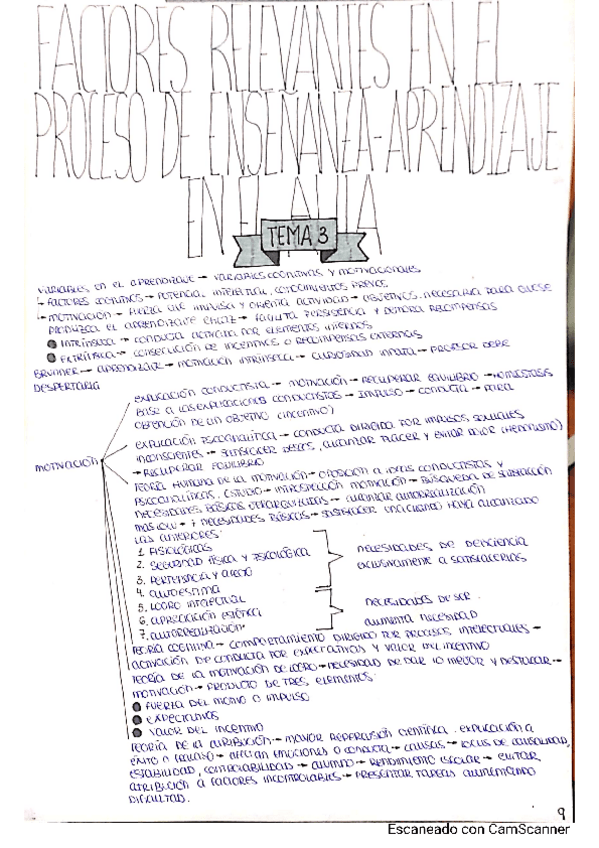 FACTORES RELEVANTES EN EL
PROCESO DE ENSEÑANZA-APRENDIZAJE
EN EL AULA
TEMA 3
VARIABLES EN EL APRENDIZAJE → VARIABLES COGNITIVAS Y MOTIVACIONALES
- FACTORES COGNITIVOS → POTENCIAL INTELECTUAL, CONOCIMIENTOS PREVIOS
- MOTIVACIÓN → FUERZA QUE IMPULSA Y ORIENTA ACTIVIDAD → OBJETIVOS. NECESARIA PARA QUE SE
PRODUZCA EL APRENDIZAJE EFICAZ → FACILITA PERSISTENCIA Y DEMORA RECOMPENSAS
● INTRÍNSECA → CONDUCTA ACTIVADA POR ELEMENTOS INTERNOS
● EXTRÍNSECA → CONSECUCIÓN DE INCENTIVOS O RECOMPENSAS EXTERNAS
BRUNNER → APRENDIZAJE → MOTIVACIÓN INTRÍNSECA → CURIOSIDAD INNATA → PROFESOR DEBE
DESPERTARLA
MOTIVACIÓN
EXPLICACIÓN CONDUCTISTA → MOTIVACIÓN → RECUPERAR EQUILIBRIO → HOMEOSTASIS
BASE A LAS EXPLICACIONES CONDUCTISTAS → IMPULSO → CONDUCTA → PARA
OBTENCIÓN DE UN OBJETIVO (INCENTIVO)
EXPLICACIÓN PSICOANALÍTICA → CONDUCTA DIRIGIDA POR IMPULSOS SEXUALES
INCONSCIENTES → SATISFACER DESEOS, ALCANZAR PLACER Y EVITAR DOLOR (HEDONISMO)
→ RECUPERAR EQUILIBRIO
TEORÍA HUMANA DE LA MOTIVACIÓN → OPOSICIÓN A IDEAS CONDUCTISTAS Y
PSICOANALÍTICAS. ESTUDIO → INTROSPECCIÓN MOTIVACIÓN → BÚSQUEDA DE SATISFACCIÓN
NECESIDADES BÁSICAS JERARQUIZADAS → CULMINAR AUTORREALIZACIÓN
MASLOW → 7 NECESIDADES BÁSICAS → SATISFACER UNA CUANDO HAYA ALCANZADO
LAS ANTERIORES:
1. FISIOLÓGICAS
2. SEGURIDAD FÍSICA Y PSICOLÓGICA
3. PERTENENCIA Y AFECTO
4. AUTOESTIMA
NECESIDADES DE DEFICIENCIA
EXCLUSIVAMENTE A SATISFACERLAS
5. LOGRO INTELECTUAL
6. APRECIACIÓN ESTÉTICA
7. AUTORREALIZACIÓN
NECESIDADES DE SER
AUMENTA NECESIDAD
TEORÍA COGNITIVA → COMPORTAMIENTO DIRIGIDO POR PROCESOS INTELECTUALES →
ACTIVACIÓN DE CONDUCTA POR EXPECTATIVAS Y VALOR DEL INCENTIVO
TEORÍA DE LA MOTIVACIÓN DE LOGRO → NECESIDAD DE DAR LO MEJOR Y DESTACAR →
MOTIVACIÓN → PRODUCTO DE TRES ELEMENTOS:
● FUERZA DEL MOTIVO O IMPULSO
● EXPECTATIVAS
● VALOR DEL INCENTIVO
TEORÍA DE LA ATRIBUCIÓN → MAYOR REPERCUSIÓN CIENTÍFICA. EXPLICACIÓN A
ÉXITO O FRACASO → AFECTAN EMOCIONES O CONDUCTA → CAUSAS → LOCUS DE CAUSALIDAD,
ESTABILIDAD, CONTROLABILIDAD → ALUMNO → RENDIMIENTO ESCOLAR → EVITAR
ATRIBUCIÓN A FACTORES INCONTROLABLES → PRESENTAR TAREAS AUMENTANDO
DIFICULTAD.
9
Escaneado con CamScanner